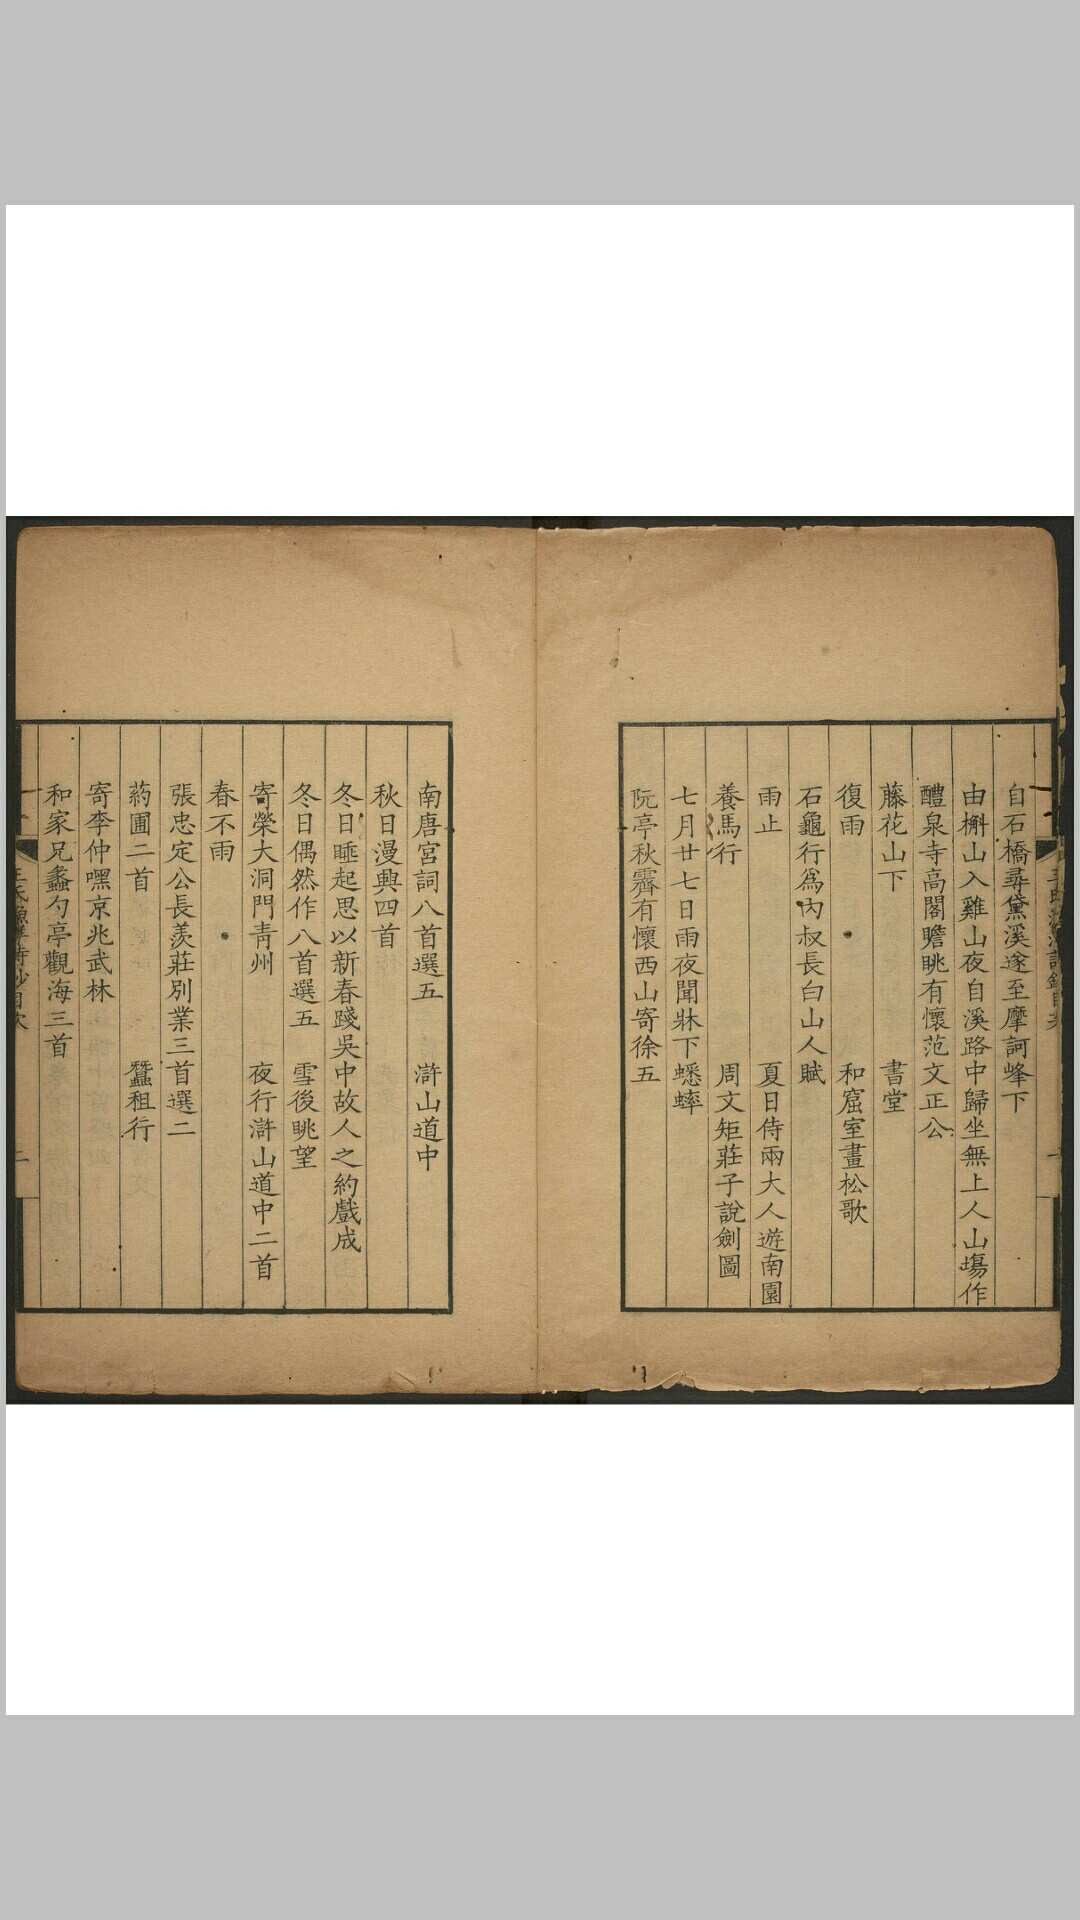 自石橋尋黛溪遂至摩訶峰下
由槲山入雞山夜自溪路中歸坐無上人山塲作
醴泉寺高閣瞻眺有懷范文正公
藤花山下 書堂
復雨 和窟室畫松歌
石龜行為內叔長白山人賦
雨止 夏日侍兩大人遊南園
養馬行 周文矩莊子說劍圖
七月廿七日雨夜聞牀下蟋蟀
阮亭秋霽有懷西山寄徐五
南唐宮詞八首選五 滸山道中
秋日漫興四首
冬日睡起思以新春踐吳中故人之約戲成
冬日偶然作八首選五 雪後眺望
寄榮大洞門青州 夜行滸山道中二首
春不雨
張忠定公長羨莊別業三首選二
葯圃二首 蠶租行
寄李仲嘿京兆武林
和家兄蠡勺亭觀海三首